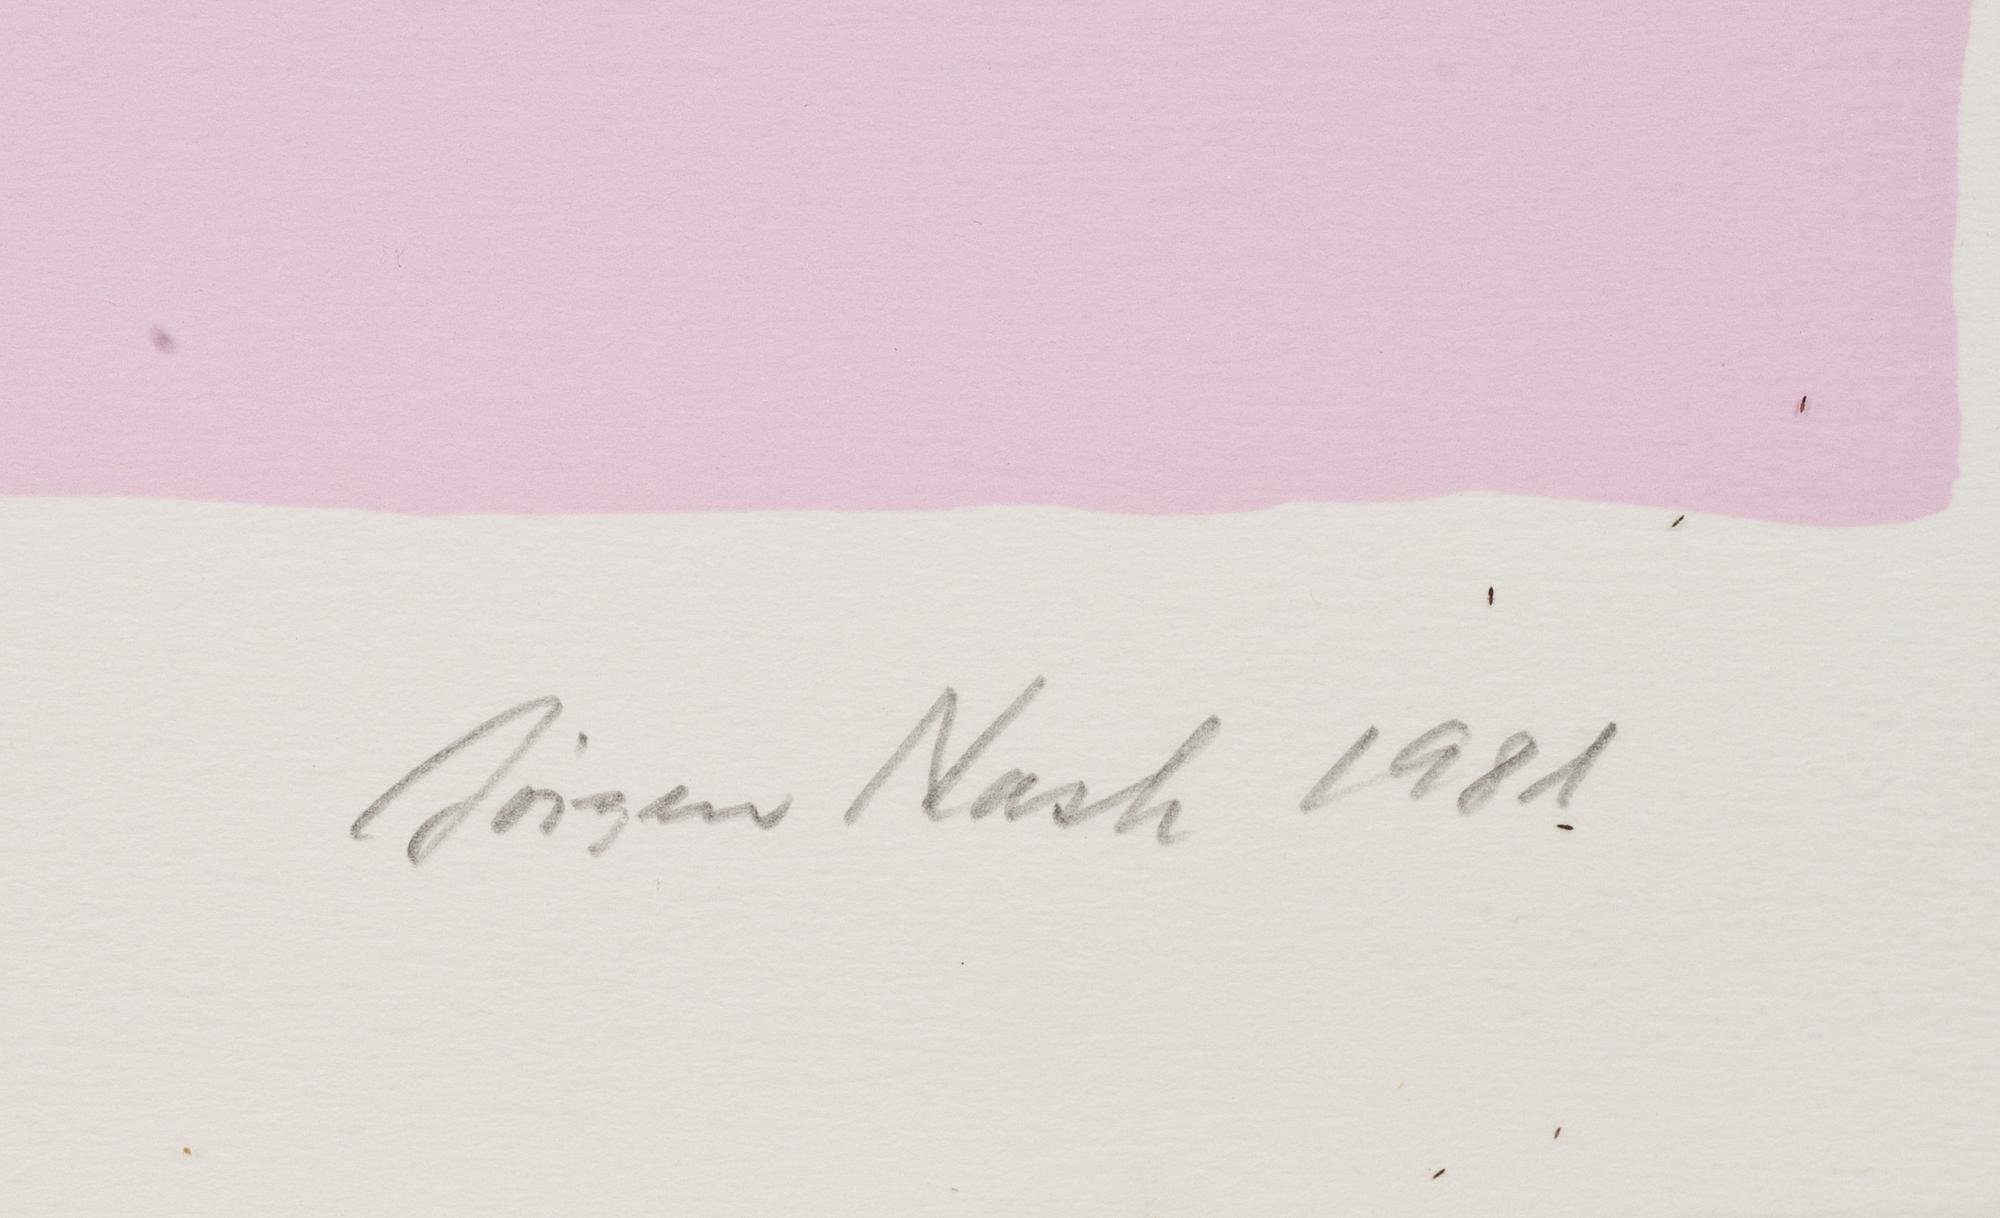 Jörgen Nash 1981